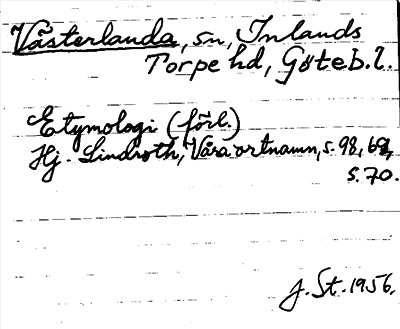 Västerlanda, sn, Inlands
Torpe hd, Göteb.l.
Etymologi (förl.)
Hj. Lindroth, Våra ortnamn, s. 98, 69,
s. 70.
J. St. 1956.